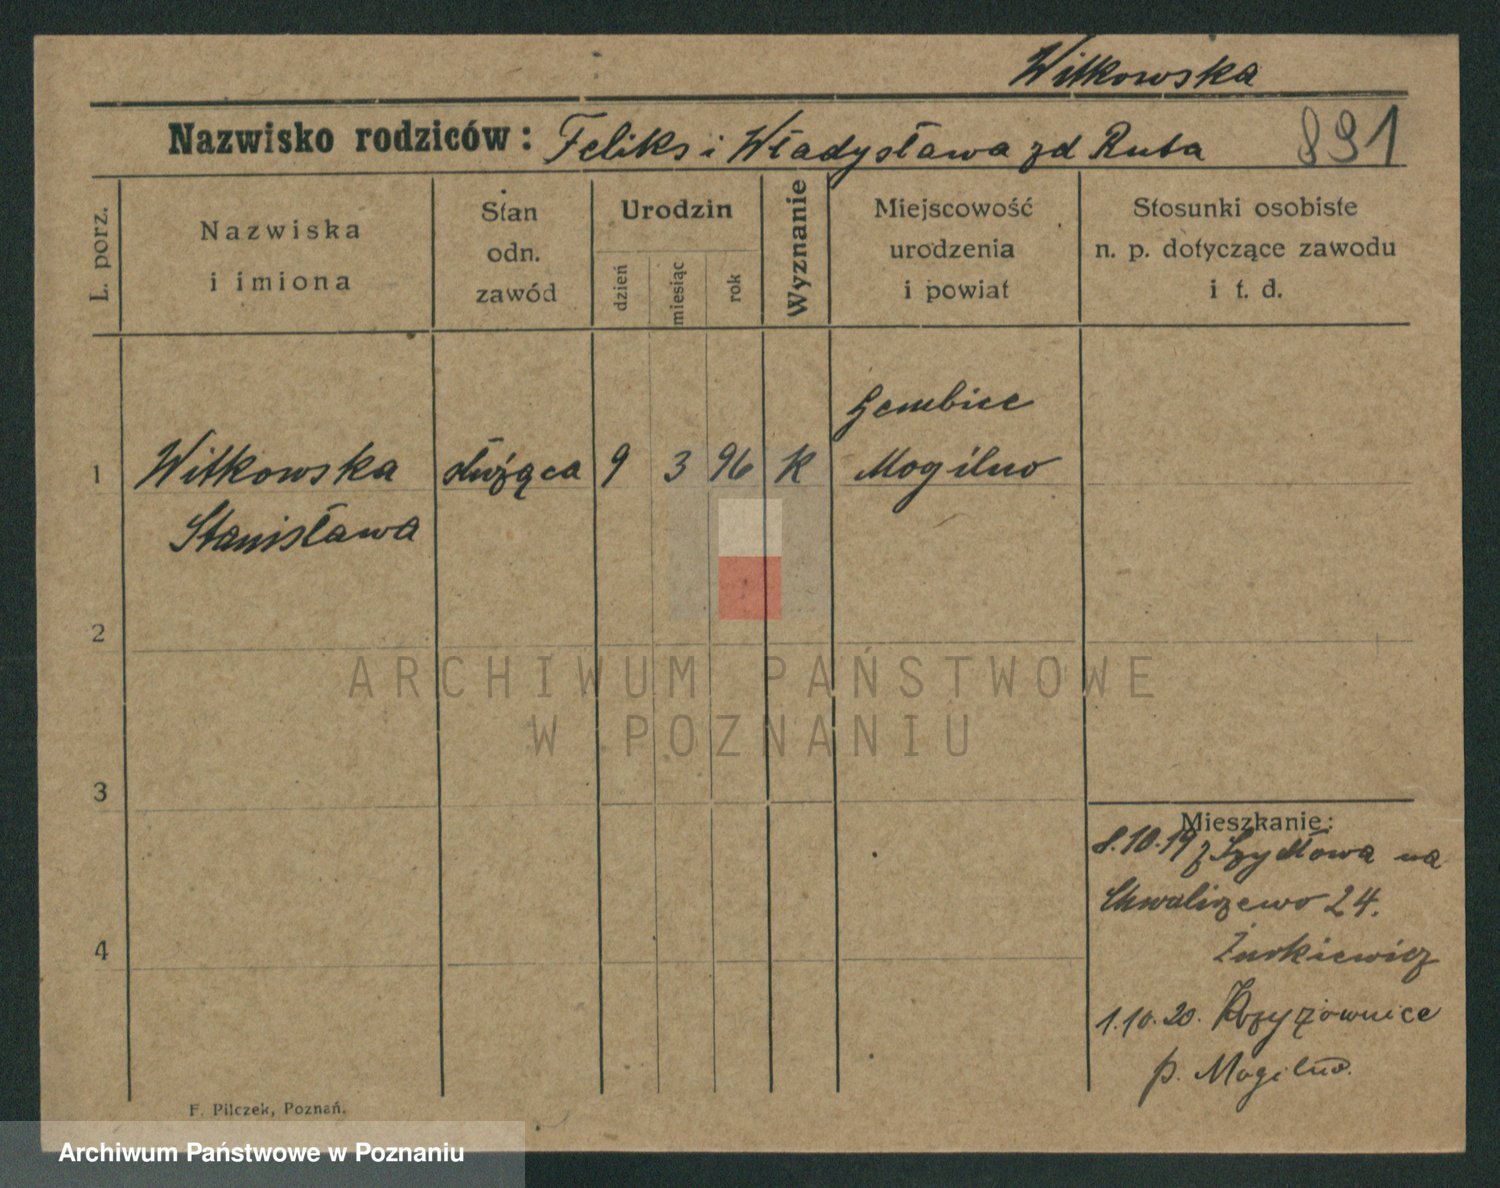 Witkowska
Nazwisko rodziców: Feliks i Władysława zd Ruta 891
L. porz.
Nazwiska
i imiona
Stan
odn.
zawód
Urodzin
dzień
miesiąc
rok
Wyznanie
Miejscowość
urodzenia
i powiat
Stosunki osobiste
n. p. dotyczące zawodu
i t. d.
Gembice
1 Witkowska służąca 9 3 96 K Mogilno
Stanisława
2
ARCHIWUM PAŃSTWOWE
W POZNANIU
3
Mieszkanie:
8.10.19 z Szydłowa na
Chwaliszewo 24.
Żurkiewicz
4
1.10.20. Krzyżownice
p. Mogilno.
F. Pilczek, Poznań.
Archiwum Państwowe w Poznaniu